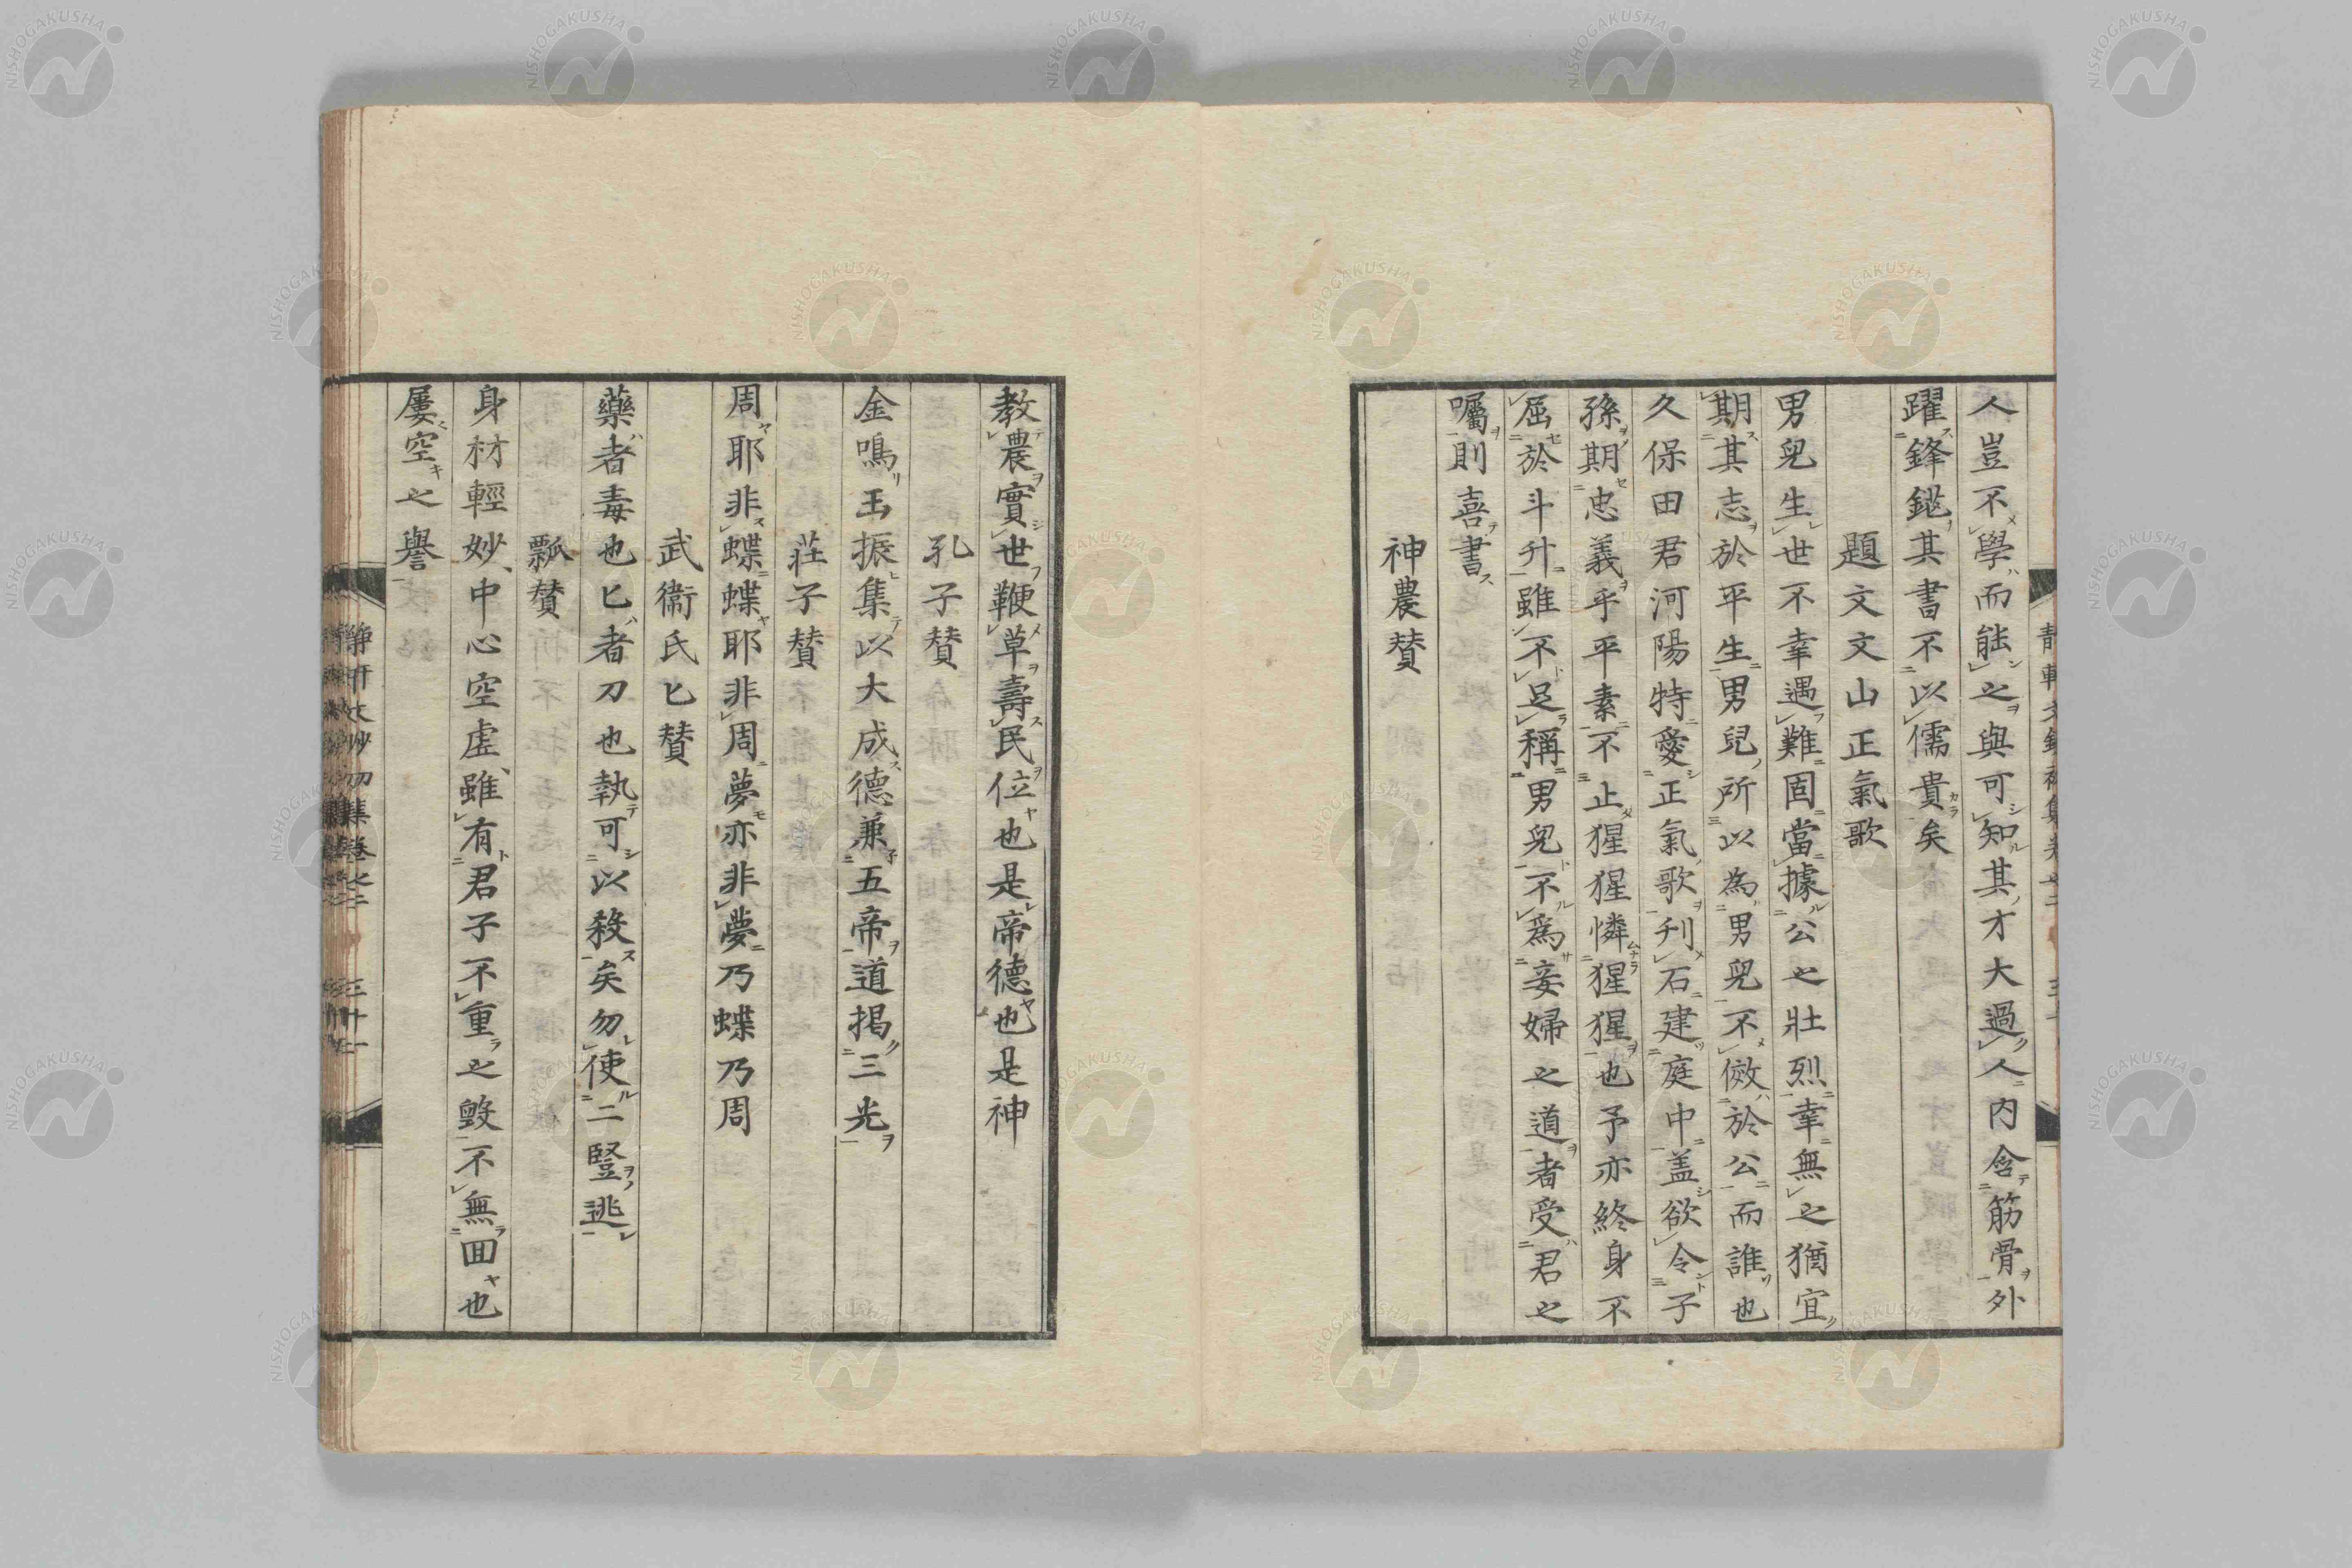 人豈不學而能之與可知其才大過人內含筋骨外
躍鋒鋩其書不以儒貴矣
題文文山正氣歌
男兒生世不幸遇難固當據公之壯烈幸無之猶宜
期其志於平生男兒所以為男兒不傚於公而誰也
久保田君河陽特愛正氣歌刋石建庭中盖欲令子
孫期忠義乎平素不止猩猩憐猩猩也予亦終身不
屈於斗升雖不足稱男兒不爲妾婦之道者受君之
囑則喜書
神農贊
教農實世鞭草壽民位也是帝德也是神
孔子贊
金鳴玉振集以大成德兼五帝道揭三光
莊子贊
周耶非蝶蝶耶非周夢亦非夢乃蝶乃周
武衞氏匕贊
藥者毒也匕者刀也執可以殺矣勿使二豎逃
瓢贊
身材輕妙中心空虛雖有君子不重之毀不無回也
屢空之譽
NISHOGAKUSHA